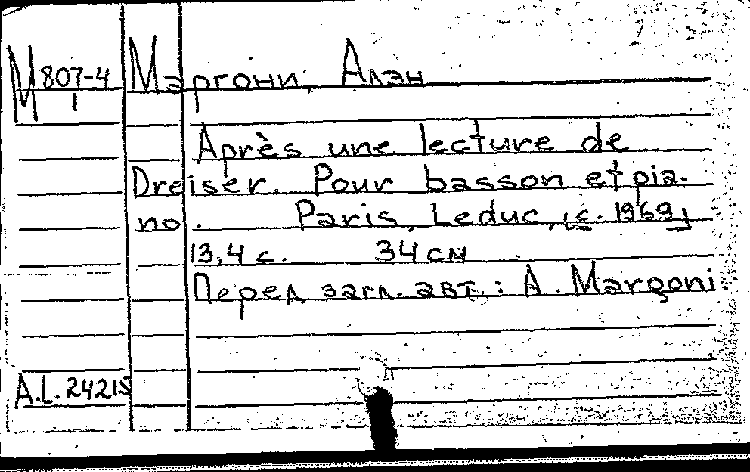 М 807-4 Маргони, Алан
1
Après une lecture de
Dreiser. Pour basson et pia-
no. Paris, Leduc, [c. 1969]
13,4 с. 34 см
Перед загл. авт.: A. Margoni
A.L. 24215